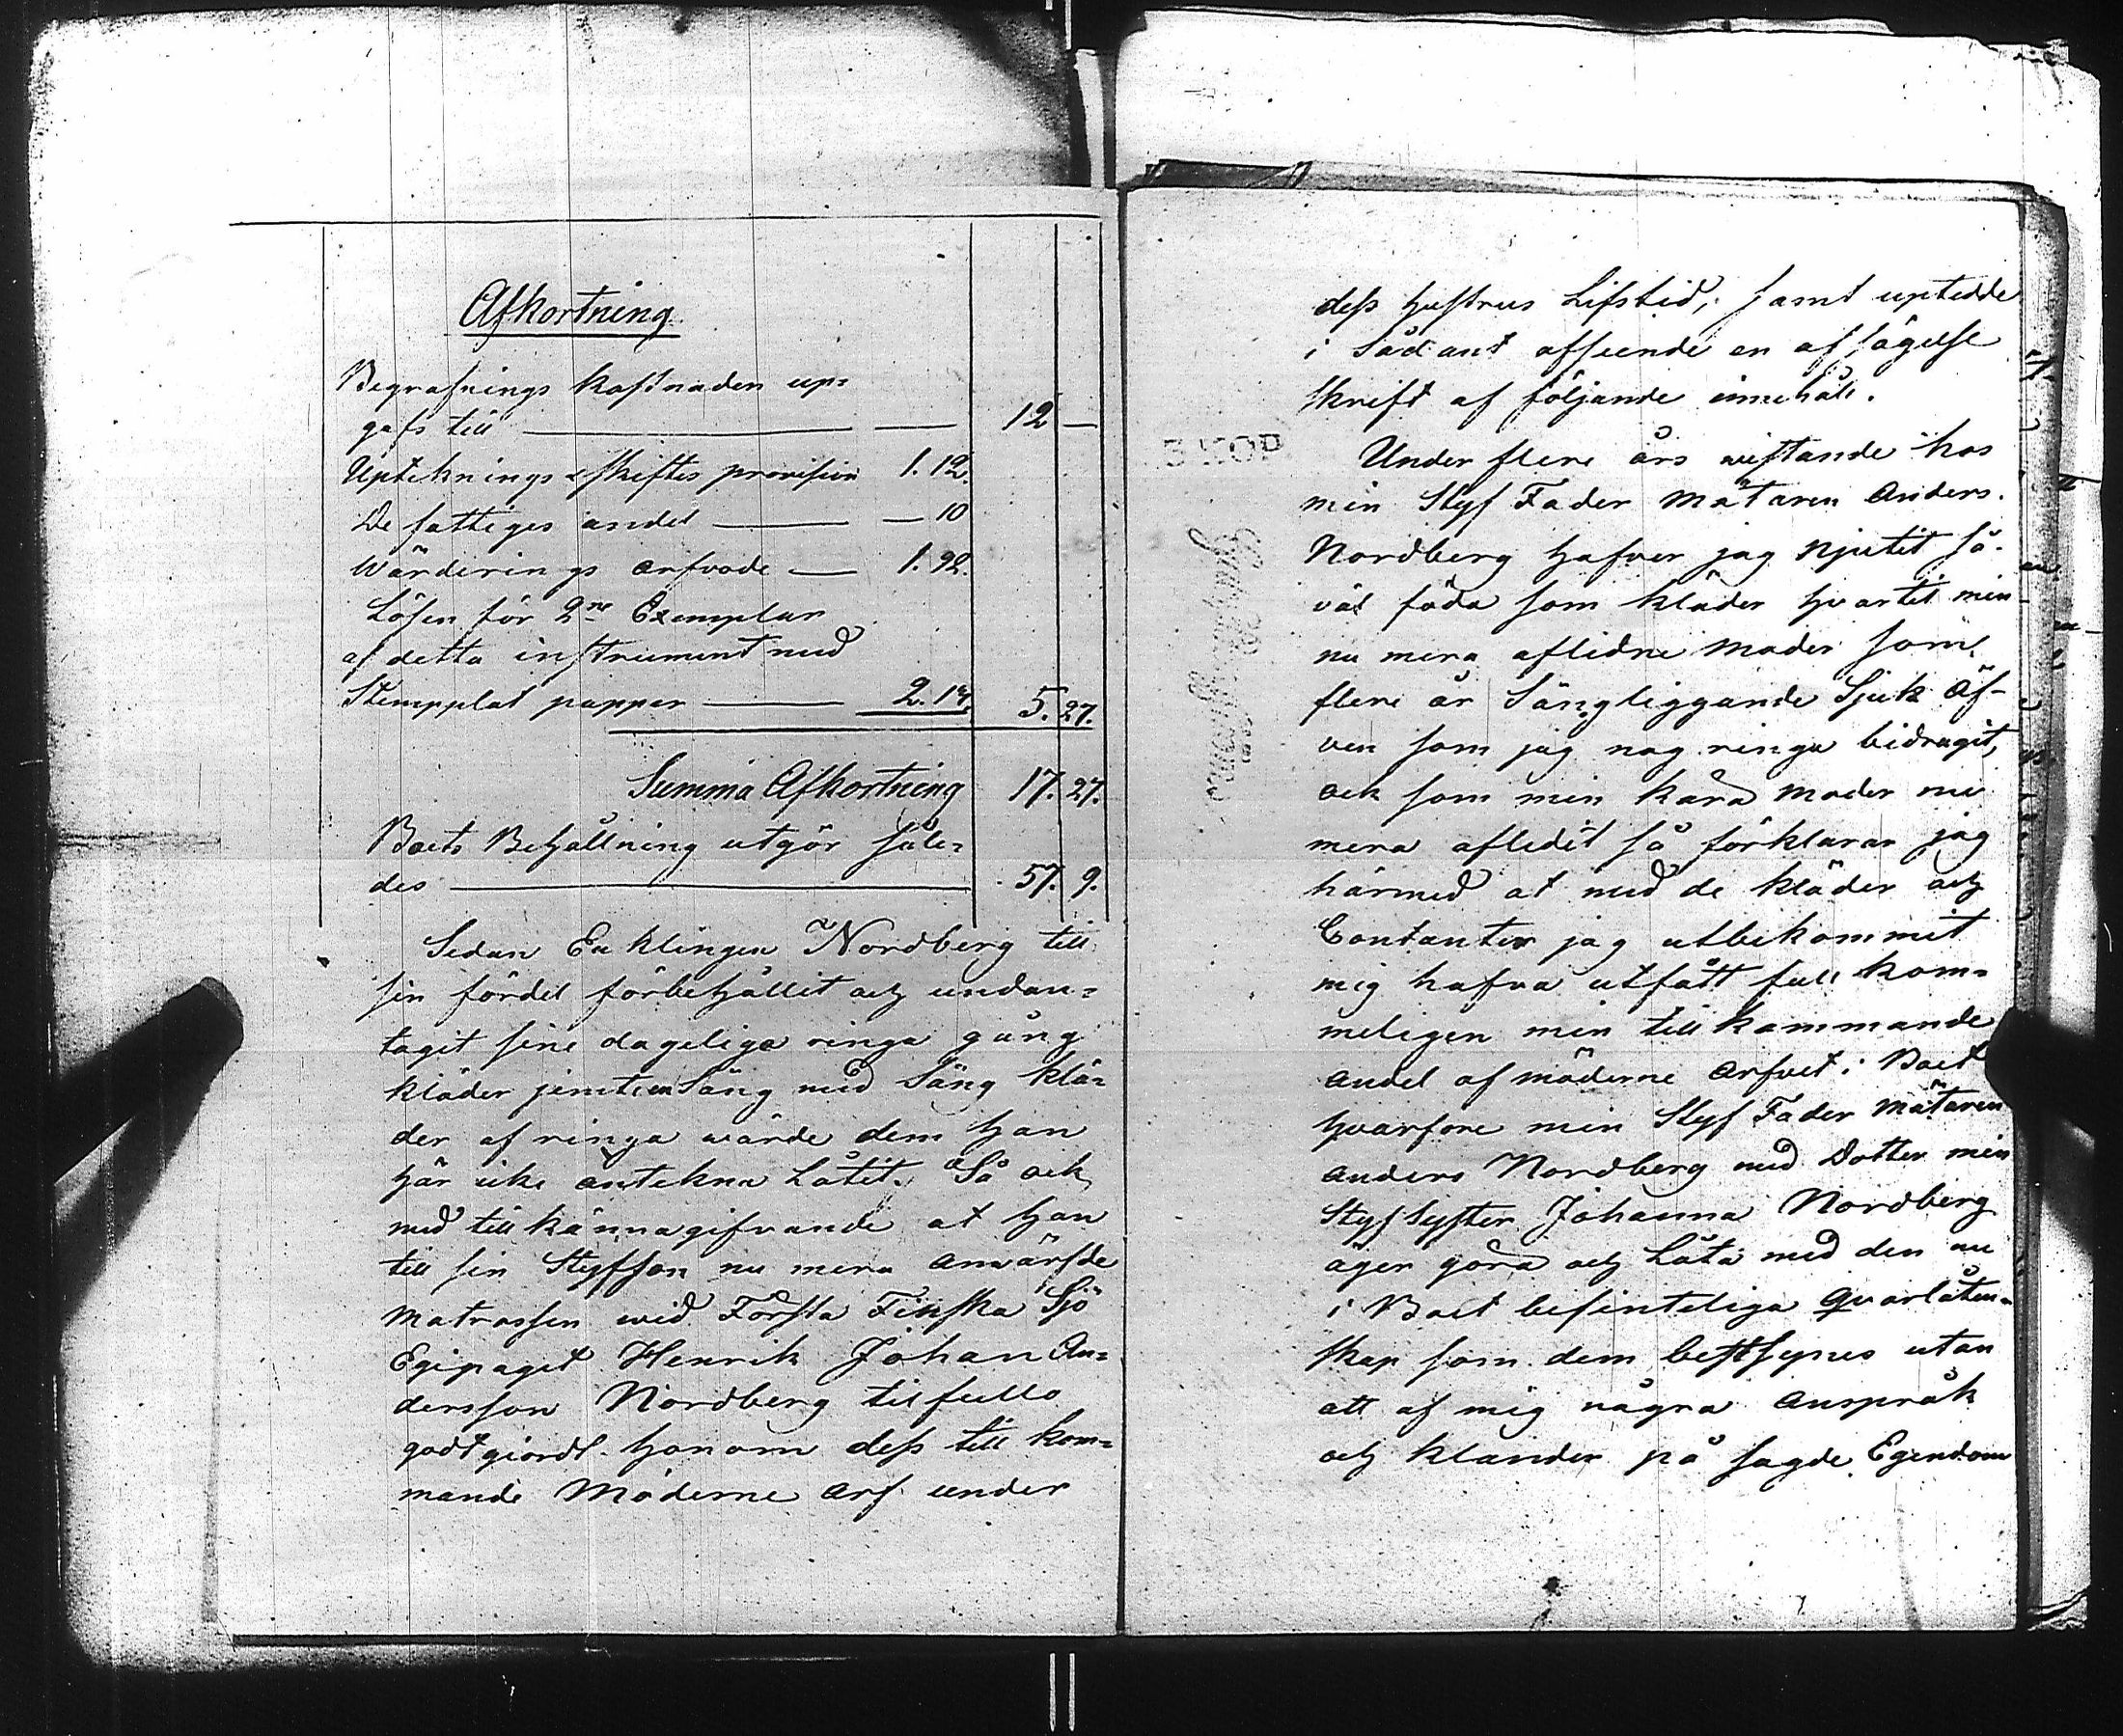 Afkortning
Begrafnings kostnaden up=
gafs till 12 —
Upteknings & skiftes provision 1. 12.
De fattiges andel — 10
Wärderings arfvode 1. 92.
Lösen för 2ne Exemplar
af detta instrument med
Stempplat papper 2. 14. 5. 27.
Summa Afkortning 17. 27.
Boets Behållning utgör såle=
des 57. 9.
Sedan Enklingen Nordberg till
sin fördel förbehållit och undan=
tagit sine dageliga ringa gång
kläder jemte en Säng med Säng klä=
der af ringa wärde dem han
här icke antekna Låtit. Så ock
med till kännagifvande at han
till sin Styfson nu mera anwärfde
Matrossen wid Första Finska Sjö
Eqipaget Henrik Johan An=
dersson Nordberg til fullo
godtgiordt honom dess till kom=
mande Möderne Arf under
dess hustrus Lifstid, samt uptedde
i Sådant afseende en afsägelse
skrift af följande innehåll.
3 KOP
Under flere års wistande hos
min Styf Fader Mätaren Anders
Nordberg hafver jag njutit så
väl föda som kläder hvartil min
nu mera aflidne Moder som
flere år Sängliggande Sjuk äf-
ven som jag nog ringa bidragit,
ock som min kära Moder nu
mera aflidit så förklarar jag
härmed at med de kläder och
Contanter jag utbekommit
mig hafva utfått full kom=
meligen min till kommande
andel af möderne Arfvet i Boet
hvarföre min Styf Fader Mätaren
Anders Nordberg med Dotter min
Styf Syster Johanna Nordberg
äger göra och Låta med den nu
i Boet befinteliga Qvarlåten=
skap som dem bestsynes utan
att af mig några Anspråk
och klander på sagde Egendom